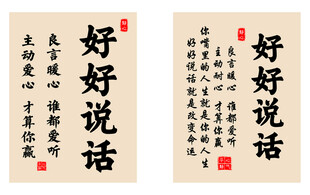 好好说话
良言暖心 谁都爱听
主动爱心 才算你赢
好好说话
良言暖心 谁都爱听
主动耐心 才算你赢
你嘴里的人生就是你的人生
好好说话就是改变命运